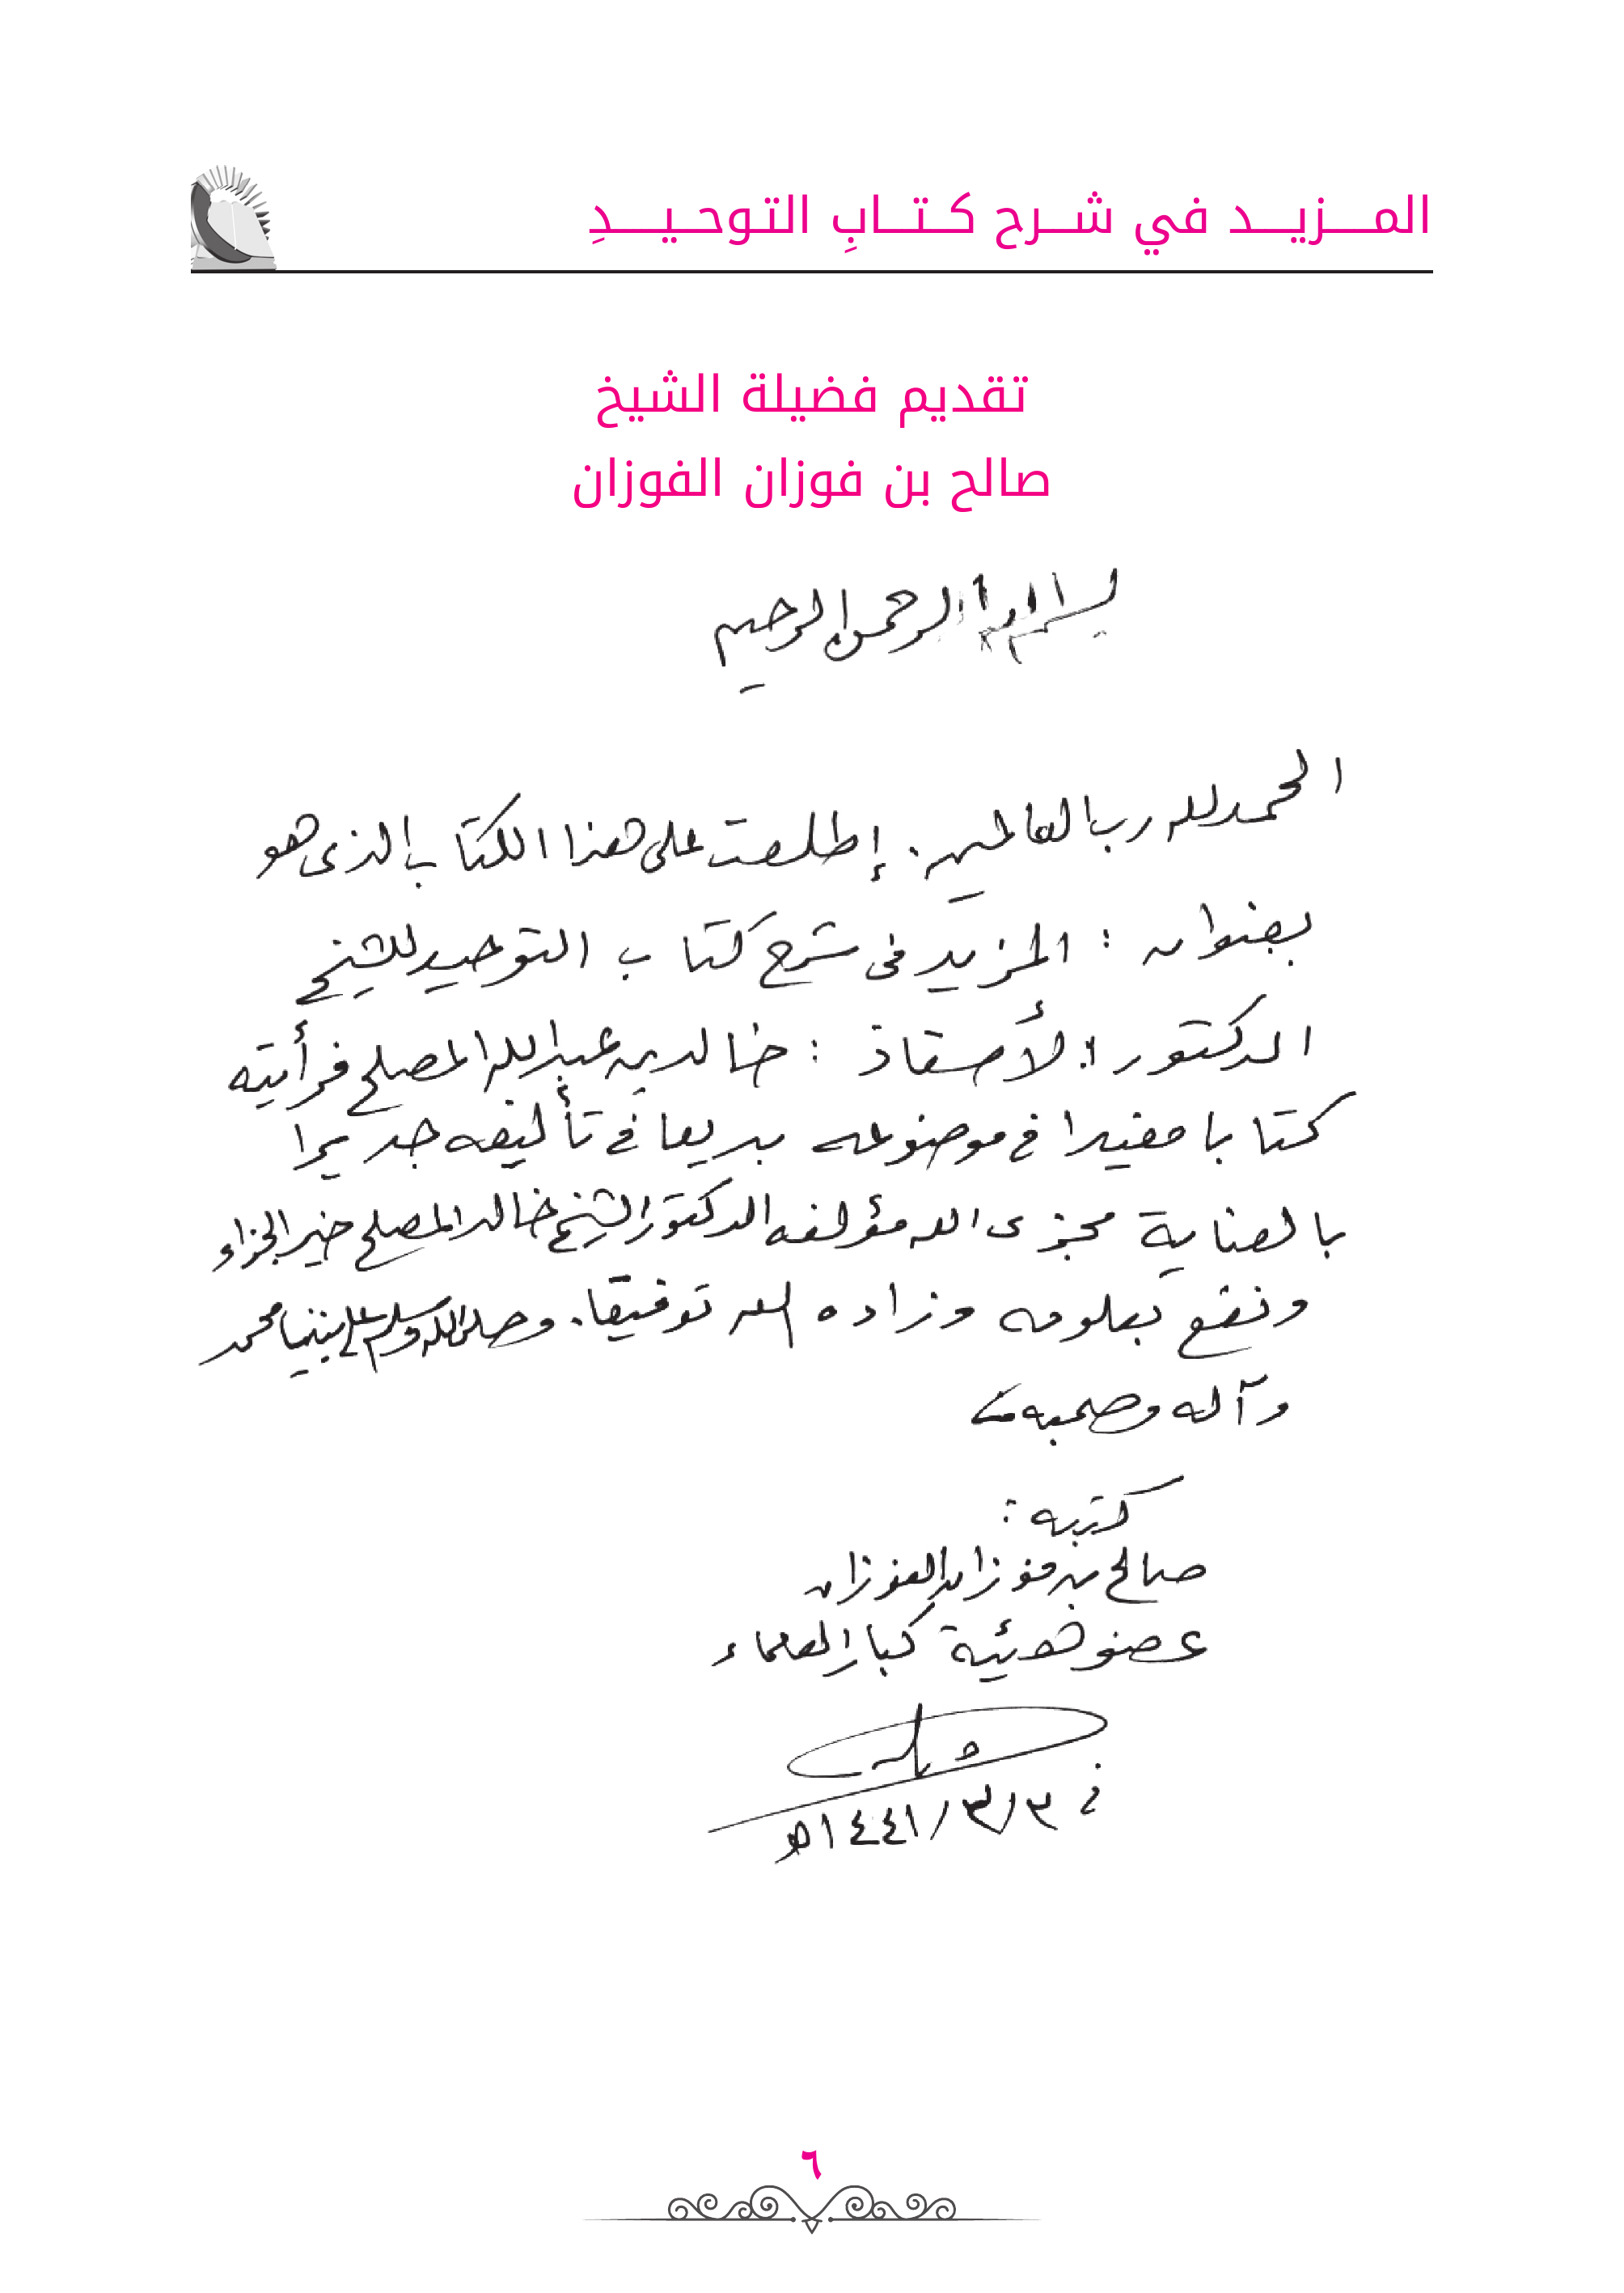 المـــزيـــد في شـــرح كـتـــابِ التوحـيـــــدِ
تقديم فضيلة الشيخ
صالح بن فوزان الفوزان
بسم الله الرحمن الرحيم
الحمد لله رب العالمين. إطلعت على هذا الكتاب الذى هو
بعنوان : المزيد فى شرح كتاب التوحيد للشيخ
الدكتور الأستاذ : خالد بن عبد الله المصلح فرأيته
كتابا مفيدا في موضوعه بديعا في تأليفه جديرا
بالعناية فجزى الله مؤلفه الدكتور الشيخ خالد المصلح خير الجزاء
ونفع بعلومه وزاده الله توفيقا. وصلى الله وسلم على نبينا محمد
وآله وصحبه
كتبه :
صالح بن فوزان الفوزان
عضو هيئة كبار العلماء
في ٣/٣/١٤٤١هـ
٦